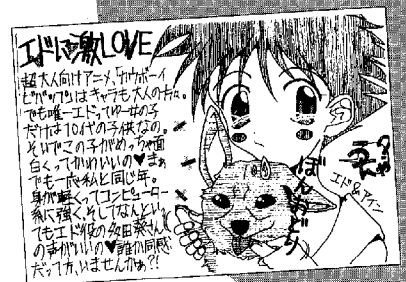 エドに激LOVE
超大人向けアニメ、カウボーイ
ビバップはキャラも大人の方に。
でも唯一エドってゆー女の子
だけは10代の子供なの。
そいでこの子がめっちゃ面
白くってかわいいの♥まぁ
でも一応私と同じ年。
身が軽くってコンピューター
系に強く、そしてなんといっ
てもエド役の多田葵さん
の声がいいの♥誰か同感
だって方、いませんかぁ?!
ぼんおどり
エド&アイン